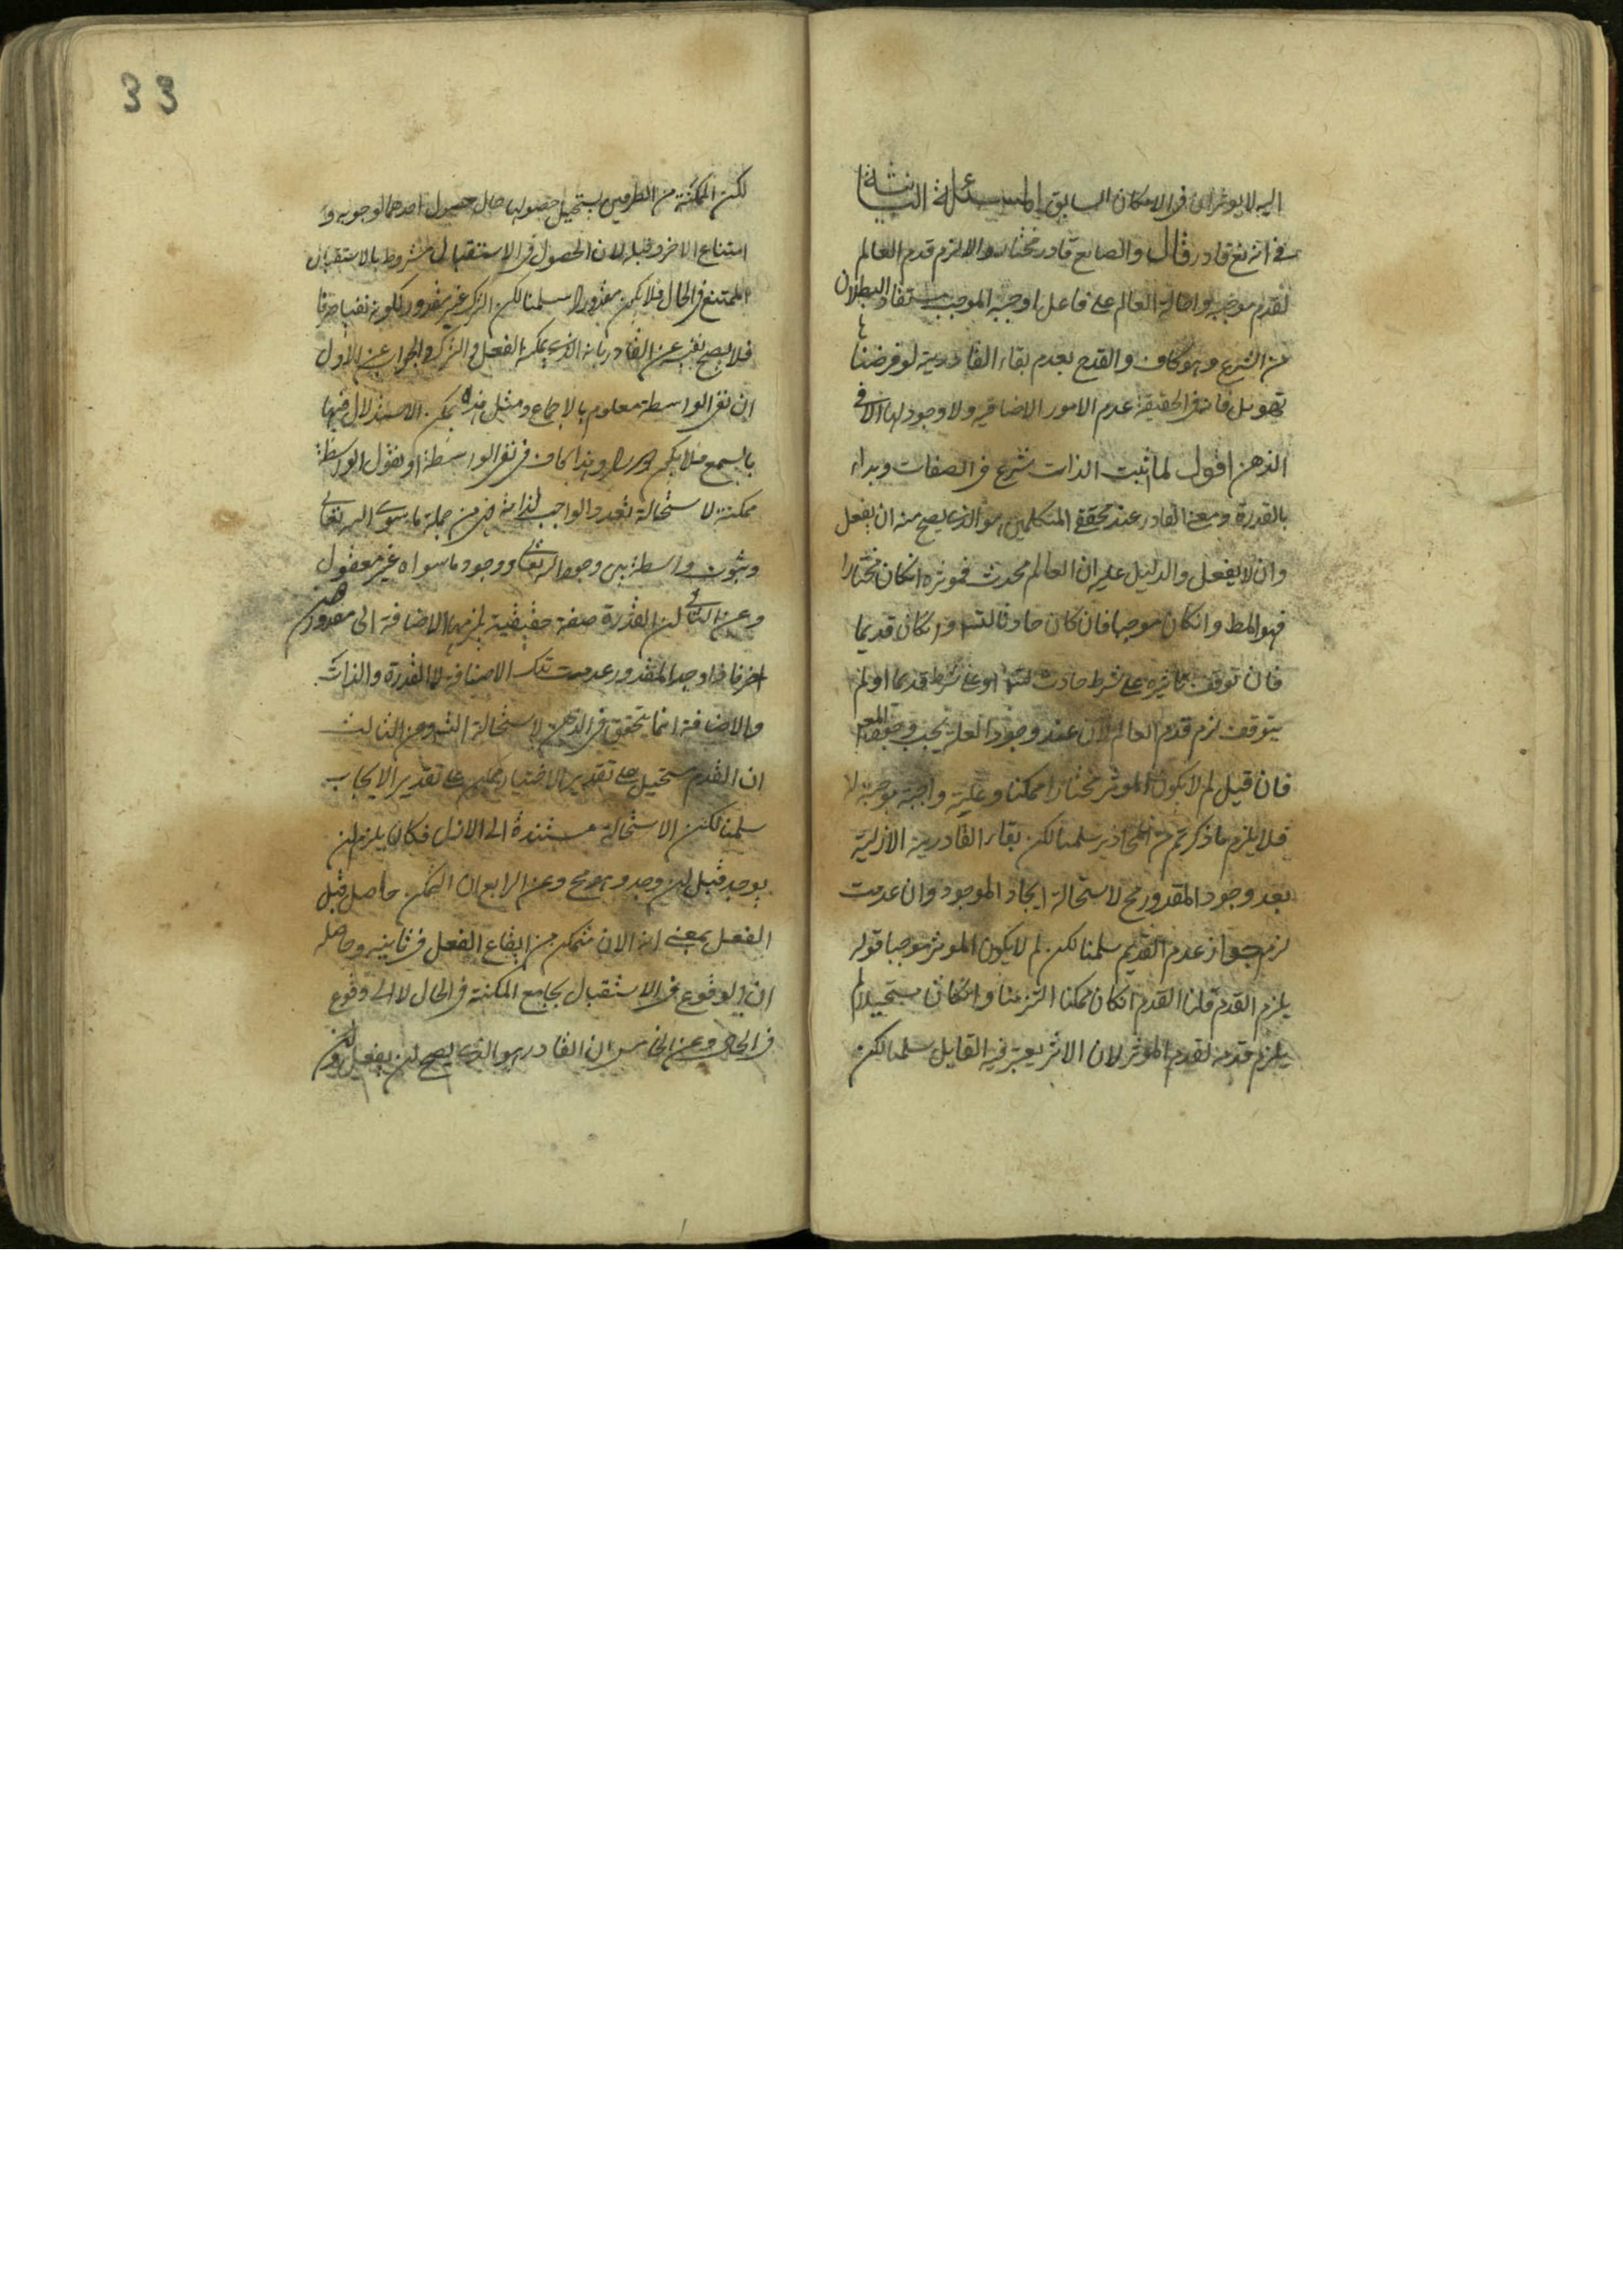 اليه لا يوثر اى فى الامكان السابق المسئلة الثانية
فى انه تع قادر قال والصانع قادر مختار والا لزم قدم العالم
لقدم موجبه واحالة العالم على فاعل اوجبه الموجب مستفاد البطلان
من الشرع وهو كاف والقدح بعدم بقاء القادرية لو فرضنا
تهويل فانه فى الحقيقة عدم الامور الاضافيه ولا وجود لها الا فى
الذهن اقول لما اثبت الذات شرع فى الصفات وبداء
بالقدرة ومعنى القادر عند محققى المتكلمين هو الذى يصح منه ان يفعل
وان لا يفعل والدليل عليه ان العالم محدث فموثره انكان مختارا
فهو المط وانكان موجبا فان كان حادثا لتس وانكان قديما
فان توقف تاثيره على شرط حادث لتس او على شرط قديم او لم
يتوقف لزم قدم العالم لان عند وجود العلة يجب وجود المع
فان قيل لم لا يكون الموثر مختارا ممكنا وعليته واجبة بوجبه لا
فلا يلزم ما ذكرتم من المحاذير سلمنا لكن بقاء القادرية الازلية
بعد وجود المقدور مح لاستحالة ايجاد الموجود وان عدمت
لزم جواز عدم القديم سلمنا لكن لم لا يكون الموثر موجبا قوله
يلزم القدم قلنا القدم انكان ممكنا التزمنا وانكان مستحيلا لم
يلزم قدمه لقدم الموثر لان الاثر يعتبر فيه القابل سلمنا لكن
33
لكن المكنة من الطرفين يستحيل حصولها حال حصول احدهما لوجوبه و
امتناع الاخر وقبله لان الحصول فى الاستقبال مشروط بالاستقبال
الممتنع فى الحال فلا يكون مقدورا سلمنا لكن الترك غير مقدور لكونه نفيا صرفا
فلا يصح تفسير القادر بانه الذى يمكنه الفعل والترك والجواب عن الاول
ان نفى الواسطة معلوم بالاجماع ومثل هذه يمكن الاستدلال فيها
بالسمع فلا يكون دورا وهذا كاف فى نفى الواسطة او نقول الواسطة
ممكنة لاستحالة تعدد الواجب لذاته فهى من جملة ما سوى الله تعالى
وثبوت واسطة بين وجود الله تعالى ووجود ما سواه غير معقول
وعن الثانى ان القدرة صفة حقيقية يلزمها الاضافة الى مقدور
فاذا وجد المقدور عدمت تلك الاضافة لا القدرة والذات
والاضافة انما يتحقق فى الذهن لاستحالة التس وعن الثالث
ان القدم مستحيل على تقدير الاختيار ممكن على تقدير الايجاب
سلمنا لكن الاستحالة مستندة الى الازل فكان يلزم ان
يوجد قبل ان وجد وهو مح وعن الرابع ان التمكن حاصل قبل
الفعل بمعنى انه الان متمكن من ايقاع الفعل فى ثانيه وحاصله
ان الوقوع فى الاستقبال يجامع المكنة فى الحال لا الى وقوع
فى الحال وعن الخامس ان القادر هو الذى يصح ان يفعل وان